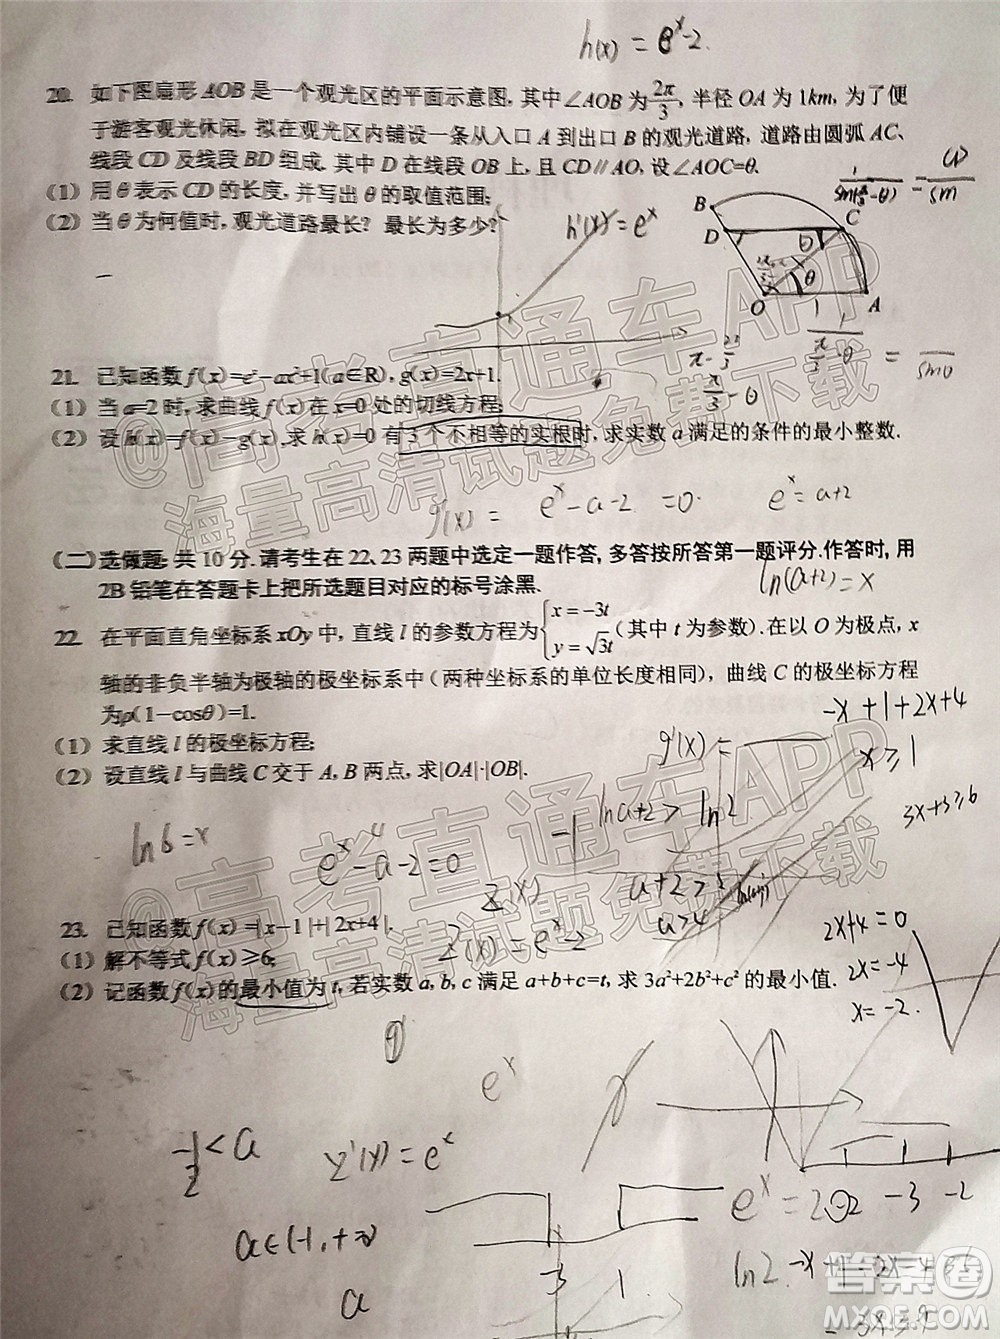 h(x) = eˣ-2.
20. 如下图扇形 AOB 是一个观光区的平面示意图, 其中∠AOB 为2π/3, 半径 OA 为 1km, 为了便
于游客观光休闲, 拟在观光区内铺设一条从入口 A 到出口 B 的观光道路, 道路由圆弧 AC、
线段 CD 及线段 BD 组成. 其中 D 在线段 OB 上, 且 CD∥AO, 设∠AOC=θ.
(1) 用θ表示 CD 的长度, 并写出θ的取值范围;
(2) 当θ为何值时, 观光道路最长? 最长为多少?
h'(x) = eˣ
B
C
D
θ
θ
O
A
π/3 - θ
21. 已知函数 f(x)=eˣ-ax²+1(a∈R), g(x)=2x+1.
(1) 当 a=2 时, 求曲线 f(x)在 x=0 处的切线方程;
(2) 设 h(x)=f(x)-g(x), 求 h(x)=0 有 3 个不相等的实根时, 求实数 a 满足的条件的最小整数.
g'(x) = eˣ-a-2 =0. eˣ=a+2
(二)选做题: 共 10 分. 请考生在 22、23 两题中选定一题作答, 多答按所答第一题评分.作答时, 用
2B 铅笔在答题卡上把所选题目对应的标号涂黑.
ln(a+2)=x
22. 在平面直角坐标系 xOy 中, 直线 l 的参数方程为{x=-3t y=√3t (其中 t 为参数).在以 O 为极点, x
轴的非负半轴为极轴的极坐标系中(两种坐标系的单位长度相同), 曲线 C 的极坐标方程
为ρ(1-cosθ)=1.
(1) 求直线 l 的极坐标方程;
(2) 设直线 l 与曲线 C 交于 A, B 两点, 求|OA|·|OB|.
-x+1+2x+4
g'(x) =
x≥1
3x+3≥6
lna+2 > ln2
ln6=x
eˣ-a-2=0
a+2>2
a>4
23. 已知函数 f(x)=|x-1|+|2x+4|.
(1) 解不等式 f(x)≥6;
(2) 记函数 f(x)的最小值为 t, 若实数 a, b, c 满足 a+b+c=t, 求 3a²+2b²+c² 的最小值.
2x+4=0
2x=-4
x=-2.
eˣ
-1/2 < a
a∈(-1,+∞)
a
-3
1
-3 -2
ln2
@高考直通车APP
海量高清试题免费下载
@高考直通车APP
海量高清试题免费下载
答案圈
MXQE.COM